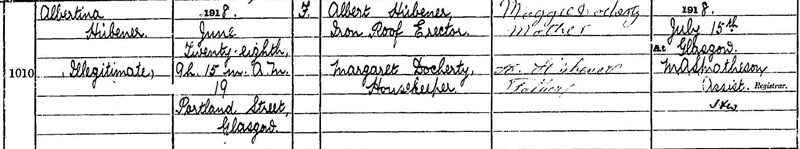 Albertina
Hübener
1010
(Illegitimate)
1918.
June
Twenty-eighth,
9h. 15 m. A.M.
19
Portland Street,
Glasgow.
F.
Albert Hübener
Iron Roof Erector
Margaret Docherty,
Housekeeper.
Maggie Docherty
Mother
Hübener
Father
1918.
July 15th
At Glasgow.
Matheson
Assist. Registrar.